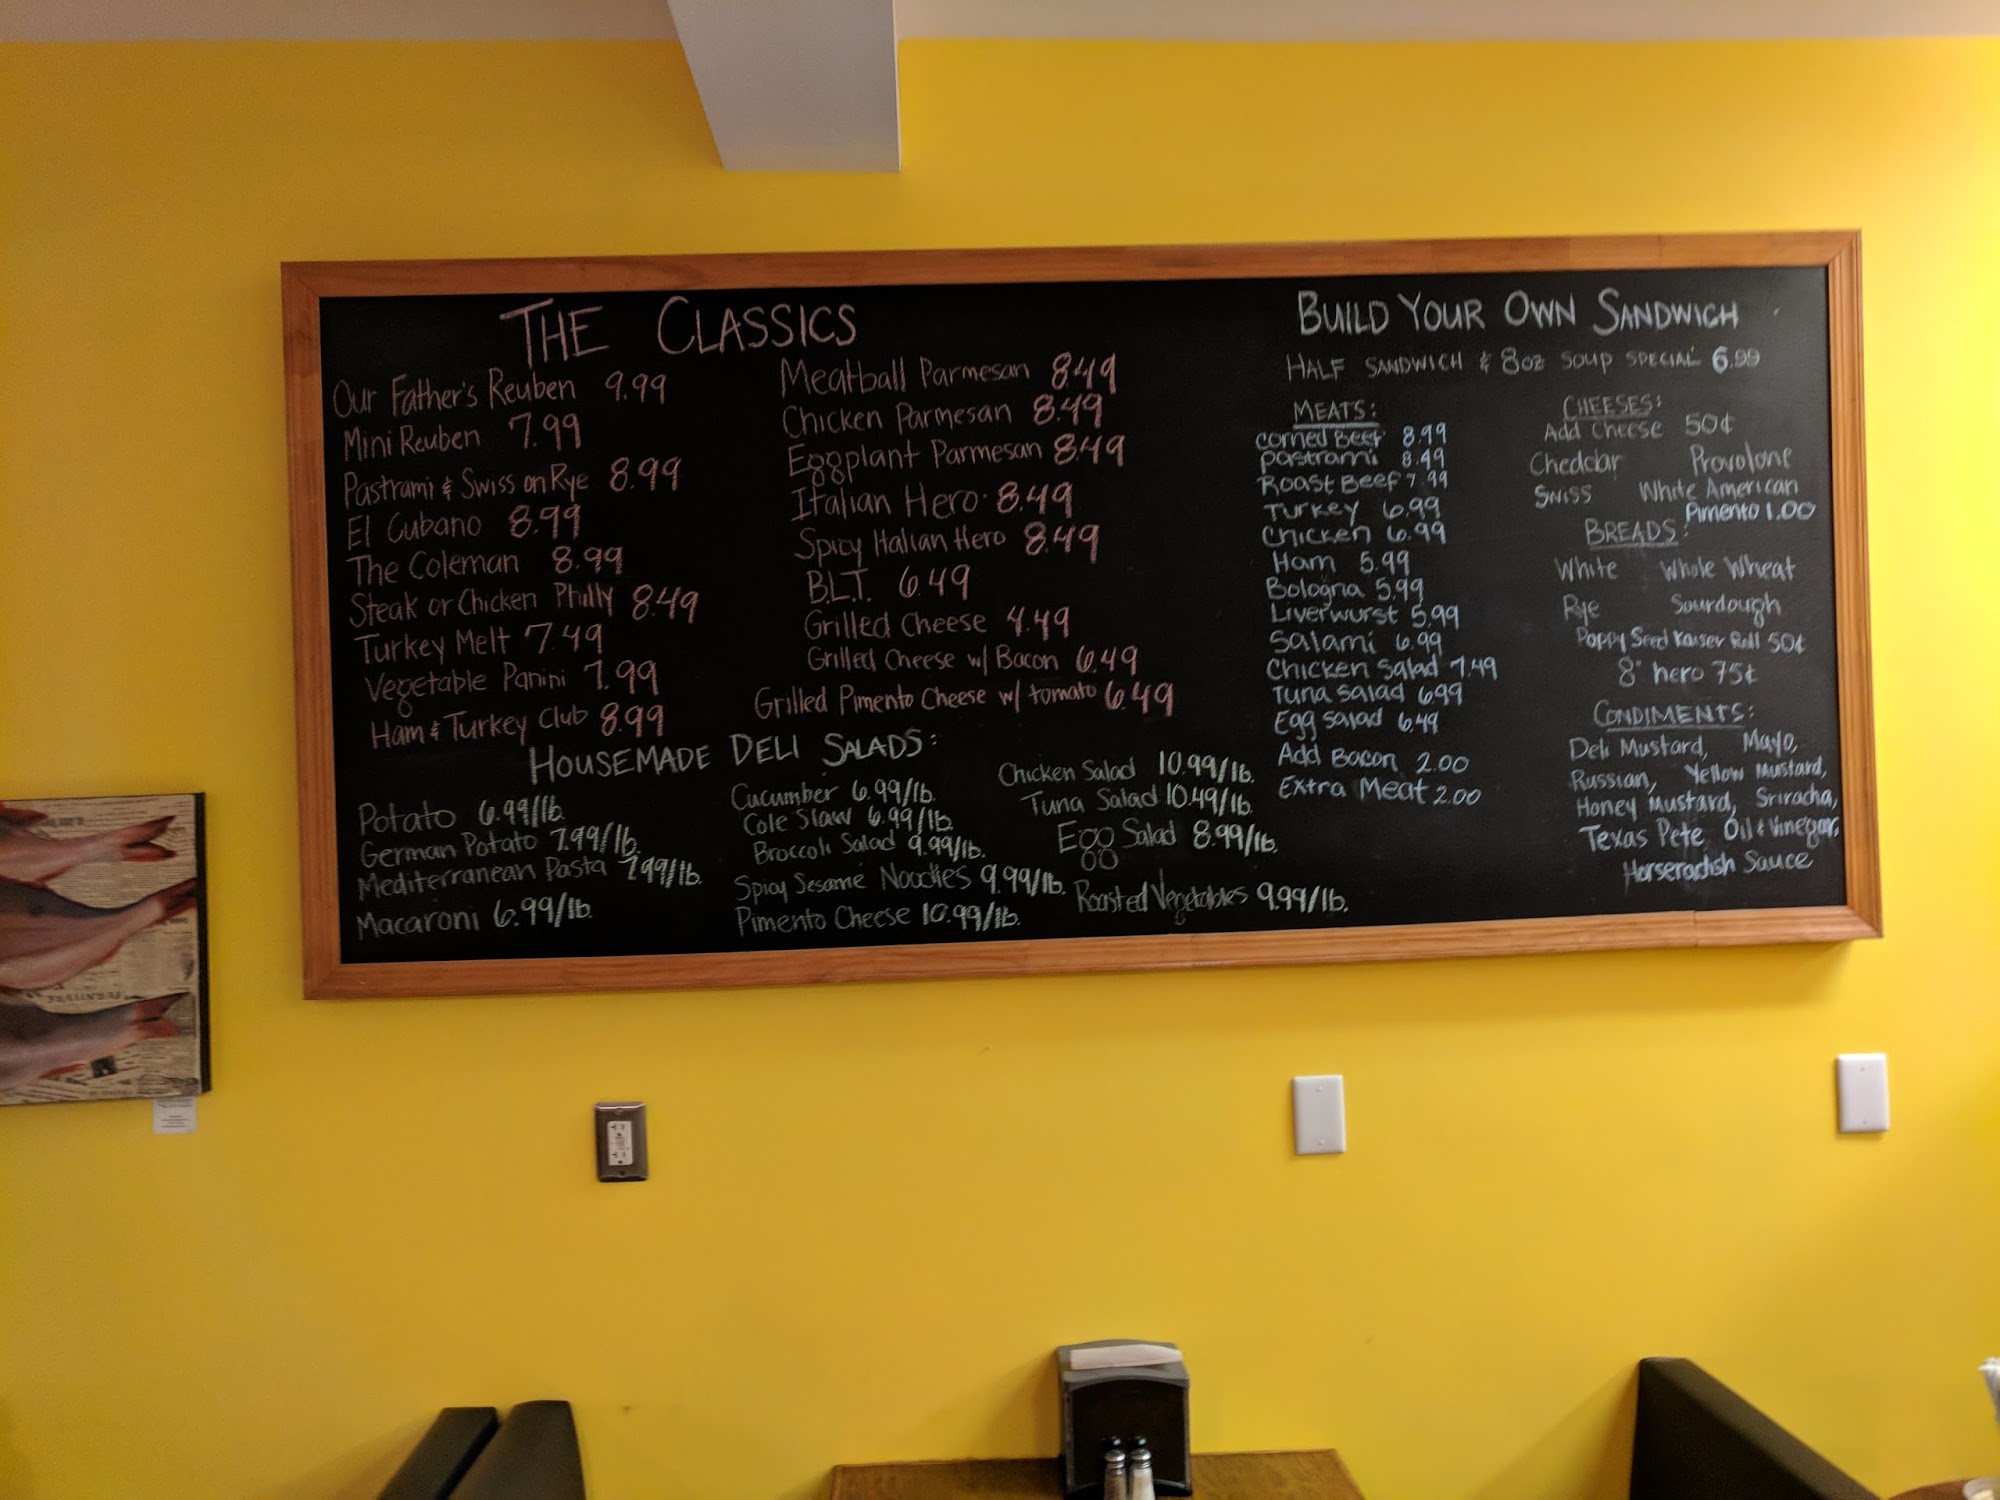 THE CLASSICS
Our Father's Reuben 9.99
Mini Reuben 7.99
Pastrami & Swiss on Rye 8.99
El Cubano 8.99
The Coleman 8.99
Steak or Chicken Philly 8.49
Turkey Melt 7.49
Vegetable Panini 7.99
Ham & Turkey Club 8.99
Meatball Parmesan 8.49
Chicken Parmesan 8.49
Eggplant Parmesan 8.49
Italian Hero 8.49
Spicy Italian Hero 8.49
B.L.T. 6.49
Grilled Cheese 4.49
Grilled Cheese w/ Bacon 6.49
Grilled Pimento Cheese w/ tomato 6.49
HOUSEMADE DELI SALADS:
Potato 6.99/lb.
German Potato 7.99/lb.
Mediterranean Pasta 7.99/lb.
Macaroni 6.99/lb.
Cucumber 6.99/lb.
Cole Slaw 6.99/lb.
Broccoli Salad 9.99/lb.
Spicy Sesame Noodles 9.99/lb.
Pimento Cheese 10.99/lb.
Chicken Salad 10.99/lb.
Tuna Salad 10.49/lb.
Egg Salad 8.99/lb.
Roasted Vegetables 9.99/lb.
BUILD YOUR OWN SANDWICH
HALF SANDWICH & 8oz SOUP SPECIAL 6.99
MEATS:
Corned Beef 8.99
Pastrami 8.49
Roast Beef 7.99
Turkey 6.99
Chicken 6.99
Ham 5.99
Bologna 5.99
Liverwurst 5.99
Salami 6.99
Chicken Salad 7.49
Tuna Salad 6.99
Egg Salad 6.49
Add Bacon 2.00
Extra Meat 2.00
CHEESES:
Add Cheese 50¢
Cheddar Provolone
Swiss White American
Pimento 1.00
BREADS:
White Whole Wheat
Rye Sourdough
Poppy Seed Kaiser Roll 50¢
8" hero 75¢
CONDIMENTS:
Deli Mustard, Mayo,
Russian, Yellow Mustard,
Honey Mustard, Sriracha,
Texas Pete Oil & Vinegar,
Horseradish Sauce